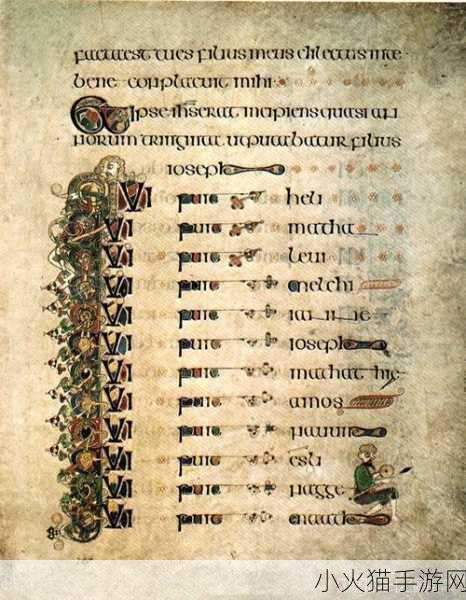 factaest tues filius meus dilectus inte
bene conplacuit mihi
Et ipse ihs erat incipiens quasi an
norum triginta ut putabatur filius
ioseph
QUI fuit heli
QUI fuit matha
QUI fuit leui
QUI fuit melchi
QUI fuit iannae
QUI fuit ioseph
QUI fuit mathathie
QUI fuit amos
QUI fuit
QUI fuit esli
QUI fuit nagge
QUI fuit maath
小火猫手游网